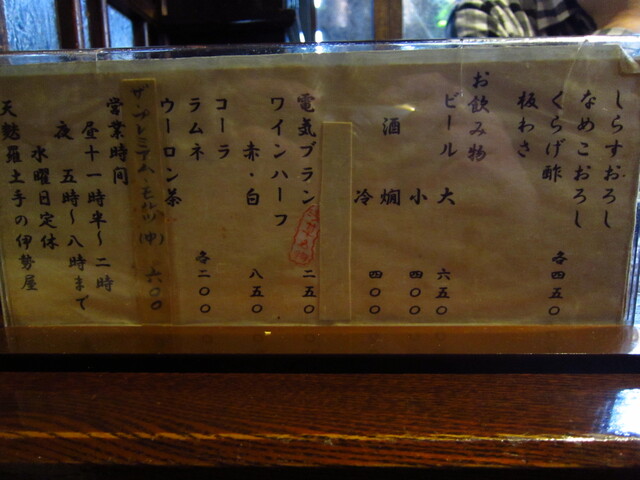 しらすおろし
なめこおろし
くらげ酢 各四五〇
板わさ
お飲み物
ビール 大 六五〇
小 四〇〇
酒 燗 四〇〇
冷
電気ブラン 二五〇
ワインハーフ
赤・白 八五〇
コーラ
ラムネ 各二〇〇
ウーロン茶
ザ・プレミアム・モルツ(中) 六〇〇
営業時間
昼十一時半〜二時
夜 五時〜八時まで
水曜日定休
天麩羅土手の伊勢屋